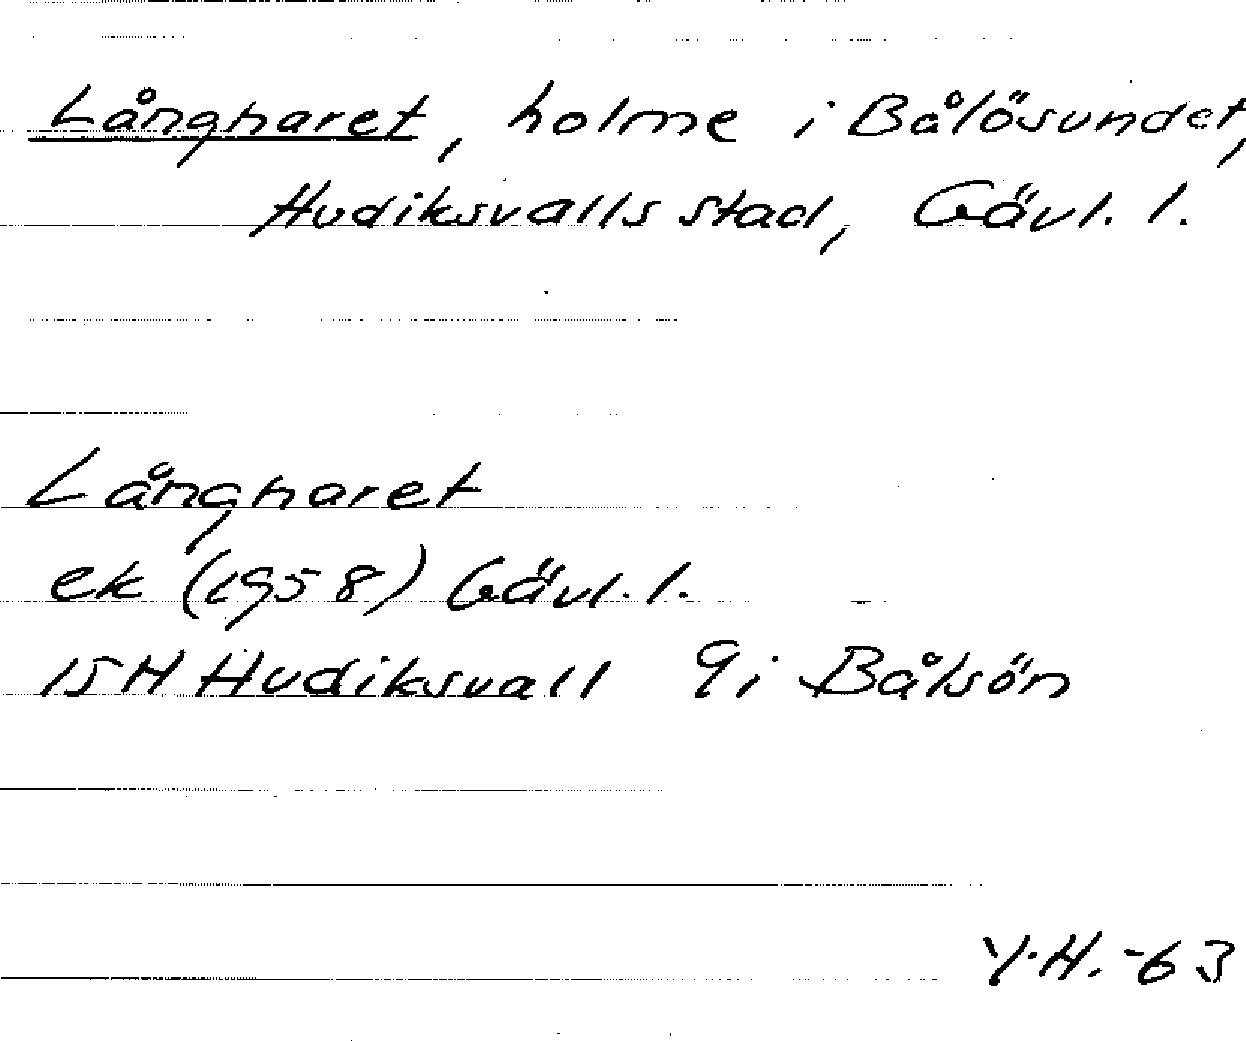 Långharet, holme i Bålösundet,
Hudiksvalls stad, Gävl. l.
Långharet
ek (1958) Gävl. l.
15H Hudiksvall 9i Bålsön
Y.H. -63